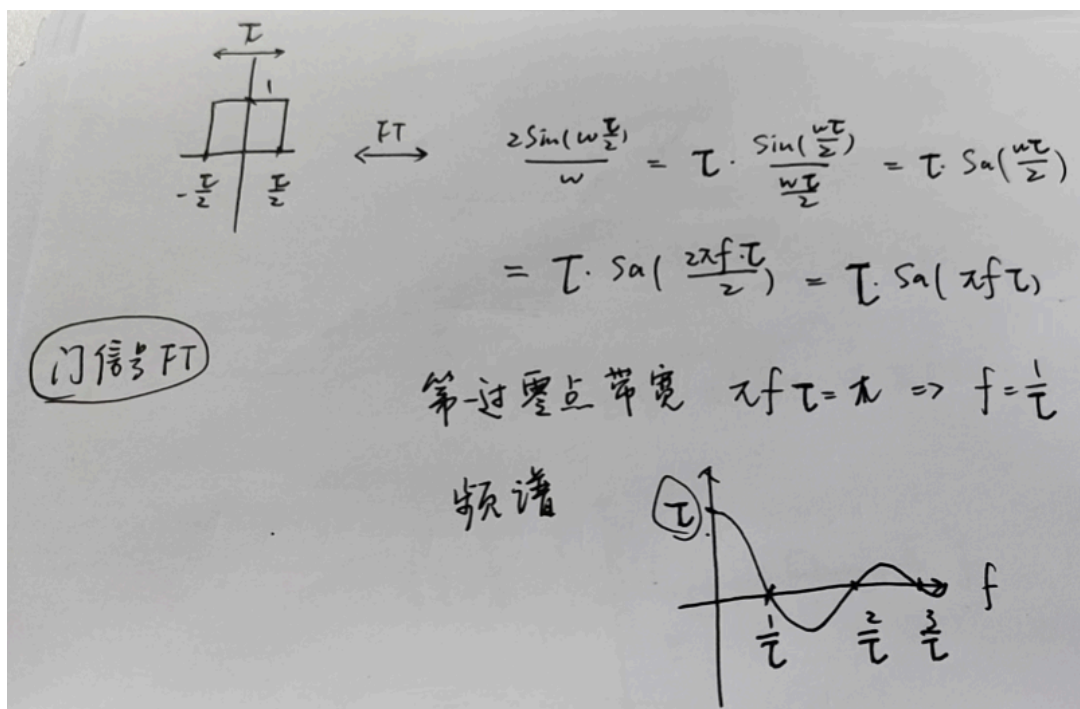 τ
1
-τ/2 τ/2
FT
2sin(wτ/2)/w = τ· sin(wτ/2)/(wτ/2) = τ· Sa(wτ/2)
= τ· Sa(2πf·τ/2) = τ· Sa(πfτ)
门信号FT
第一过零点带宽 πfτ=π => f=1/τ
频谱
τ
f
1/τ 2/τ 3/τ